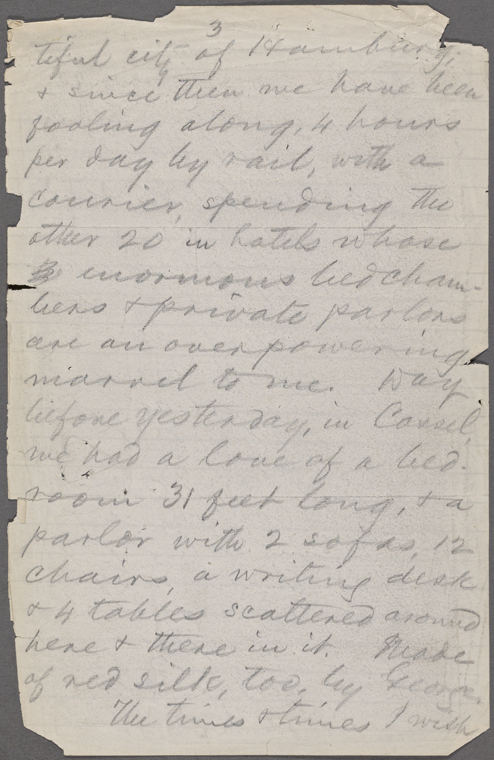 3
tiful city of Hamburg,
& since then we have been
fooling along, 4 hours
per day by rail, with a
courier, spending the
other 20 in hotels whose
enormous bedcham-
bers & private parlors
are an overpowering
marvel to me. Day
before yesterday, in Cassel,
we had a love of a bed-
room 31 feet long, & a
parlor with 2 sofas, 12
chairs, a writing desk
& 4 tables scattered around
here & there in it. Made
of red silk, too, by George.
The times & times I wish